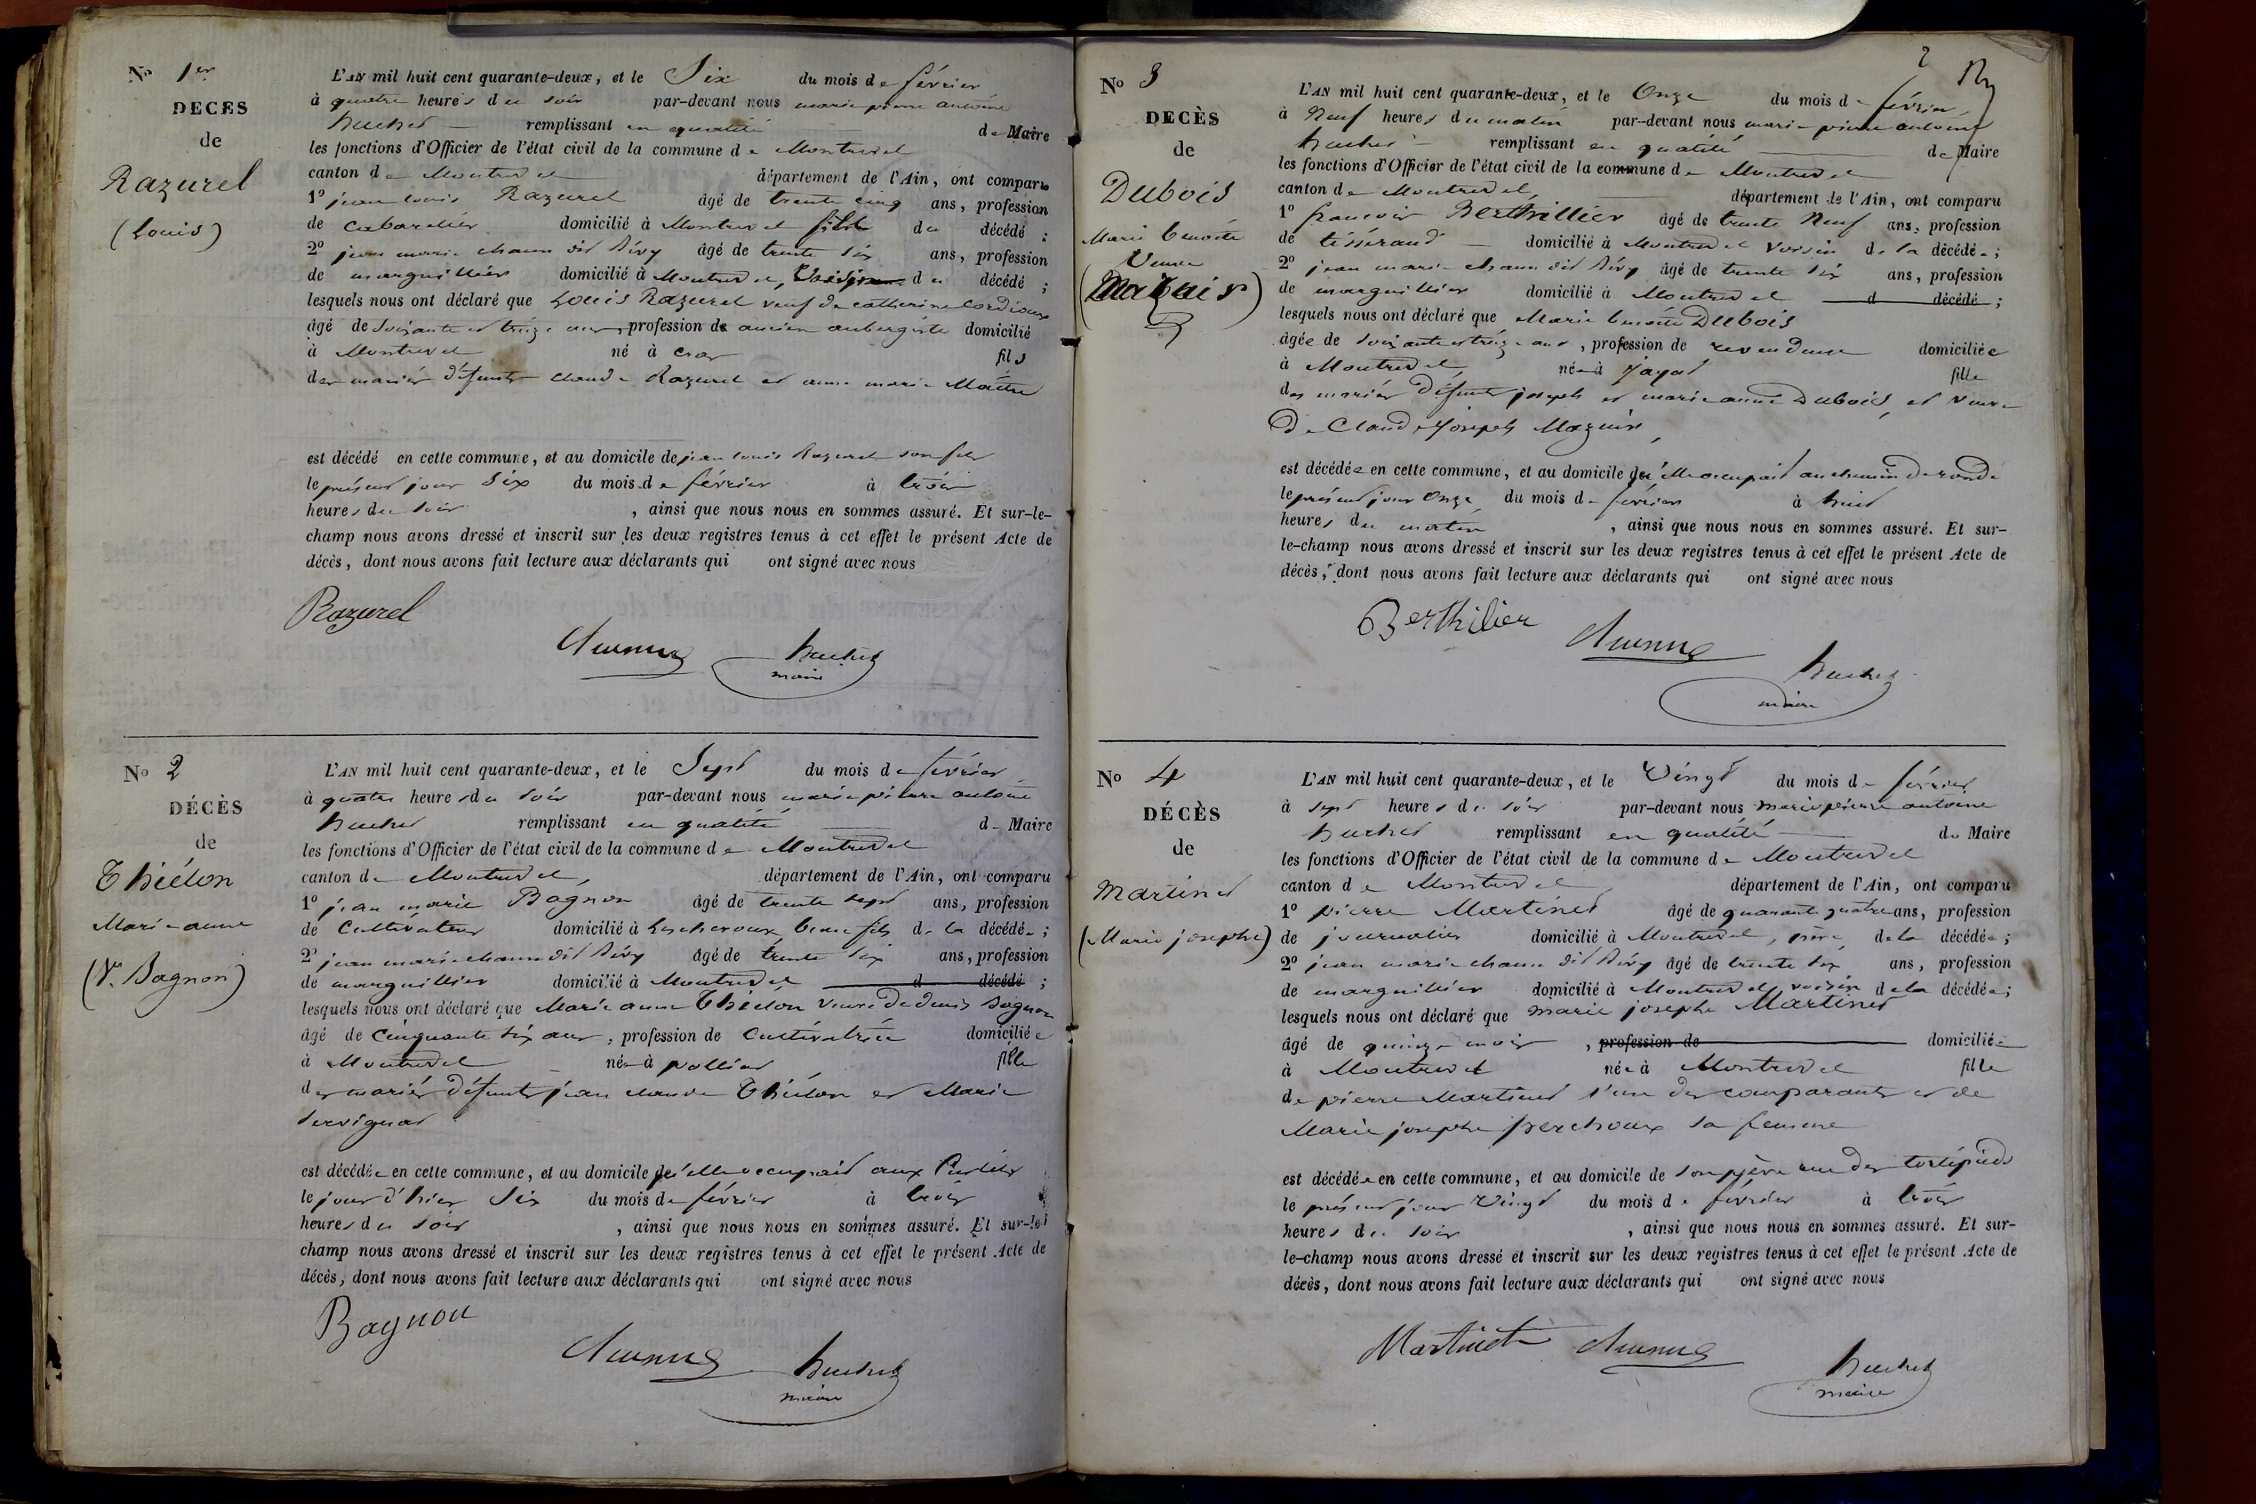 No 1er
DÉCES
de
Razurel
(Louis)
L'AN mil huit cent quarante-deux, et le Six du mois de février
à quatre heures du soir par-devant nous marie pierre antoine
huchet remplissant en qualité de Maire
les fonctions d'Officier de l'état civil de la commune de Montrevel
canton de Montrevel département de l'Ain, ont comparu
1o jean louis Razurel âgé de trente cinq ans, profession
de cabaretier domicilié à Montrevel fils du décédé ;
2o jean marie chanu dit Sivy âgé de trente six ans, profession
de marguillier domicilié à Montrevel, voisin du décédé ;
lesquels nous ont déclaré que Louis Razurel veuf de catherine Cordioux
âgé de soixante et treize ans, profession de ancien aubergiste domicilié
à Montrevel né à cras fils
des mariés défunts claude Razurel et anne marie Maitre
est décédé en cette commune, et au domicile de jean louis Razurel son fils
le présent jour Six du mois de février à trois
heures du soir, ainsi que nous nous en sommes assuré. Et sur-le-
champ nous avons dressé et inscrit sur les deux registres tenus à cet effet le présent Acte de
décès, dont nous avons fait lecture aux déclarants qui ont signé avec nous
Razurel
huchet
maire
No 2
DÉCÈS
de
Thiélon
Marie anne
(Ve Bagnon)
L'AN mil huit cent quarante-deux, et le Sept du mois de février
à quatre heures du soir par-devant nous marie pierre antoine
huchet remplissant en qualité de Maire
les fonctions d'Officier de l'état civil de la commune de Montrevel
canton de Montrevel, département de l'Ain, ont comparu
1o jean marie Bagnon âgé de trente sept ans, profession
de cultivateur domicilié à Lescheroux beau fils de la décédée ;
2o jean marie chanu dit Sivy âgé de trente six ans, profession
de marguillier domicilié à Montrevel d décédé ;
lesquels nous ont déclaré que Marie anne Thiélon veuve de denis Bagnon
âgé de cinquante six ans, profession de cultivatrice domiciliée
à Montrevel née à polliat fille
des mariés défunts jean claude Thiélon et Marie
Servignat
est décédée en cette commune, et au domicile qu'elle occupait aux
le jour d'hier Six du mois de février à trois
heures du soir, ainsi que nous nous en sommes assuré. Et sur-le-
champ nous avons dressé et inscrit sur les deux registres tenus à cet effet le présent Acte de
décès, dont nous avons fait lecture aux déclarants qui ont signé avec nous
Bagnon
huchet
maire
2
No 3
DÉCÈS
de
Dubois
Marie benoite
Veuve
(Mazuir)
L'AN mil huit cent quarante-deux, et le Onze du mois de février
à Neuf heures du matin par-devant nous marie pierre antoine
huchet remplissant en qualité de Maire
les fonctions d'Officier de l'état civil de la commune de Montrevel
canton de Montrevel, département de l'Ain, ont comparu
1o francois Berthillier âgé de trente Neuf ans, profession
de tisserand domicilié à Montrevel voisin de la décédée ;
2o jean marie chanu dit Sivy âgé de trente six ans, profession
de marguillier domicilié à Montrevel d décédé ;
lesquels nous ont déclaré que Marie benoite Dubois
âgée de soixante et treize ans, profession de revendeuse domiciliée
à Montrevel, née à jayat fille
des mariés défunts joseph et marie anne Dubois, et veuve
De Claude joseph Mazuir,
est décédée en cette commune, et au domicile qu'elle occupait au chemin de ronde
le présent jour Onze du mois de février à huit
heures du matin, ainsi que nous nous en sommes assuré. Et sur-
le-champ nous avons dressé et inscrit sur les deux registres tenus à cet effet le présent Acte de
décès, dont nous avons fait lecture aux déclarants qui ont signé avec nous
Berthilier
huchet
maire
No 4
DÉCÈS
de
Martinet
(Marie josephe)
L'AN mil huit cent quarante-deux, et le Vingt du mois de février
à sept heures du soir par-devant nous marie pierre antoine
huchet remplissant en qualité de Maire
les fonctions d'Officier de l'état civil de la commune de Montrevel
canton de Montrevel département de l'Ain, ont comparu
1o pierre Martinet âgé de quarante quatre ans, profession
de journalier domicilié à Montrevel, père de la décédée ;
2o jean marie chanu dit Sivy âgé de trente six ans, profession
de marguillier domicilié à Montrevel, voisin de la décédée ;
lesquels nous ont déclaré que marie josephe Martinet
âgé de quinze mois, profession de domiciliée
à Montrevel née à Montrevel fille
de pierre Martinet l'un des comparants et de
Marie josephe perchoux sa femme
est décédée en cette commune, et au domicile de son père rue des
le présent jour Vingt du mois de février à trois
heures du soir, ainsi que nous nous en sommes assuré. Et sur-
le-champ nous avons dressé et inscrit sur les deux registres tenus à cet effet le présent Acte de
décès, dont nous avons fait lecture aux déclarants qui ont signé avec nous
Martinet
huchet
maire